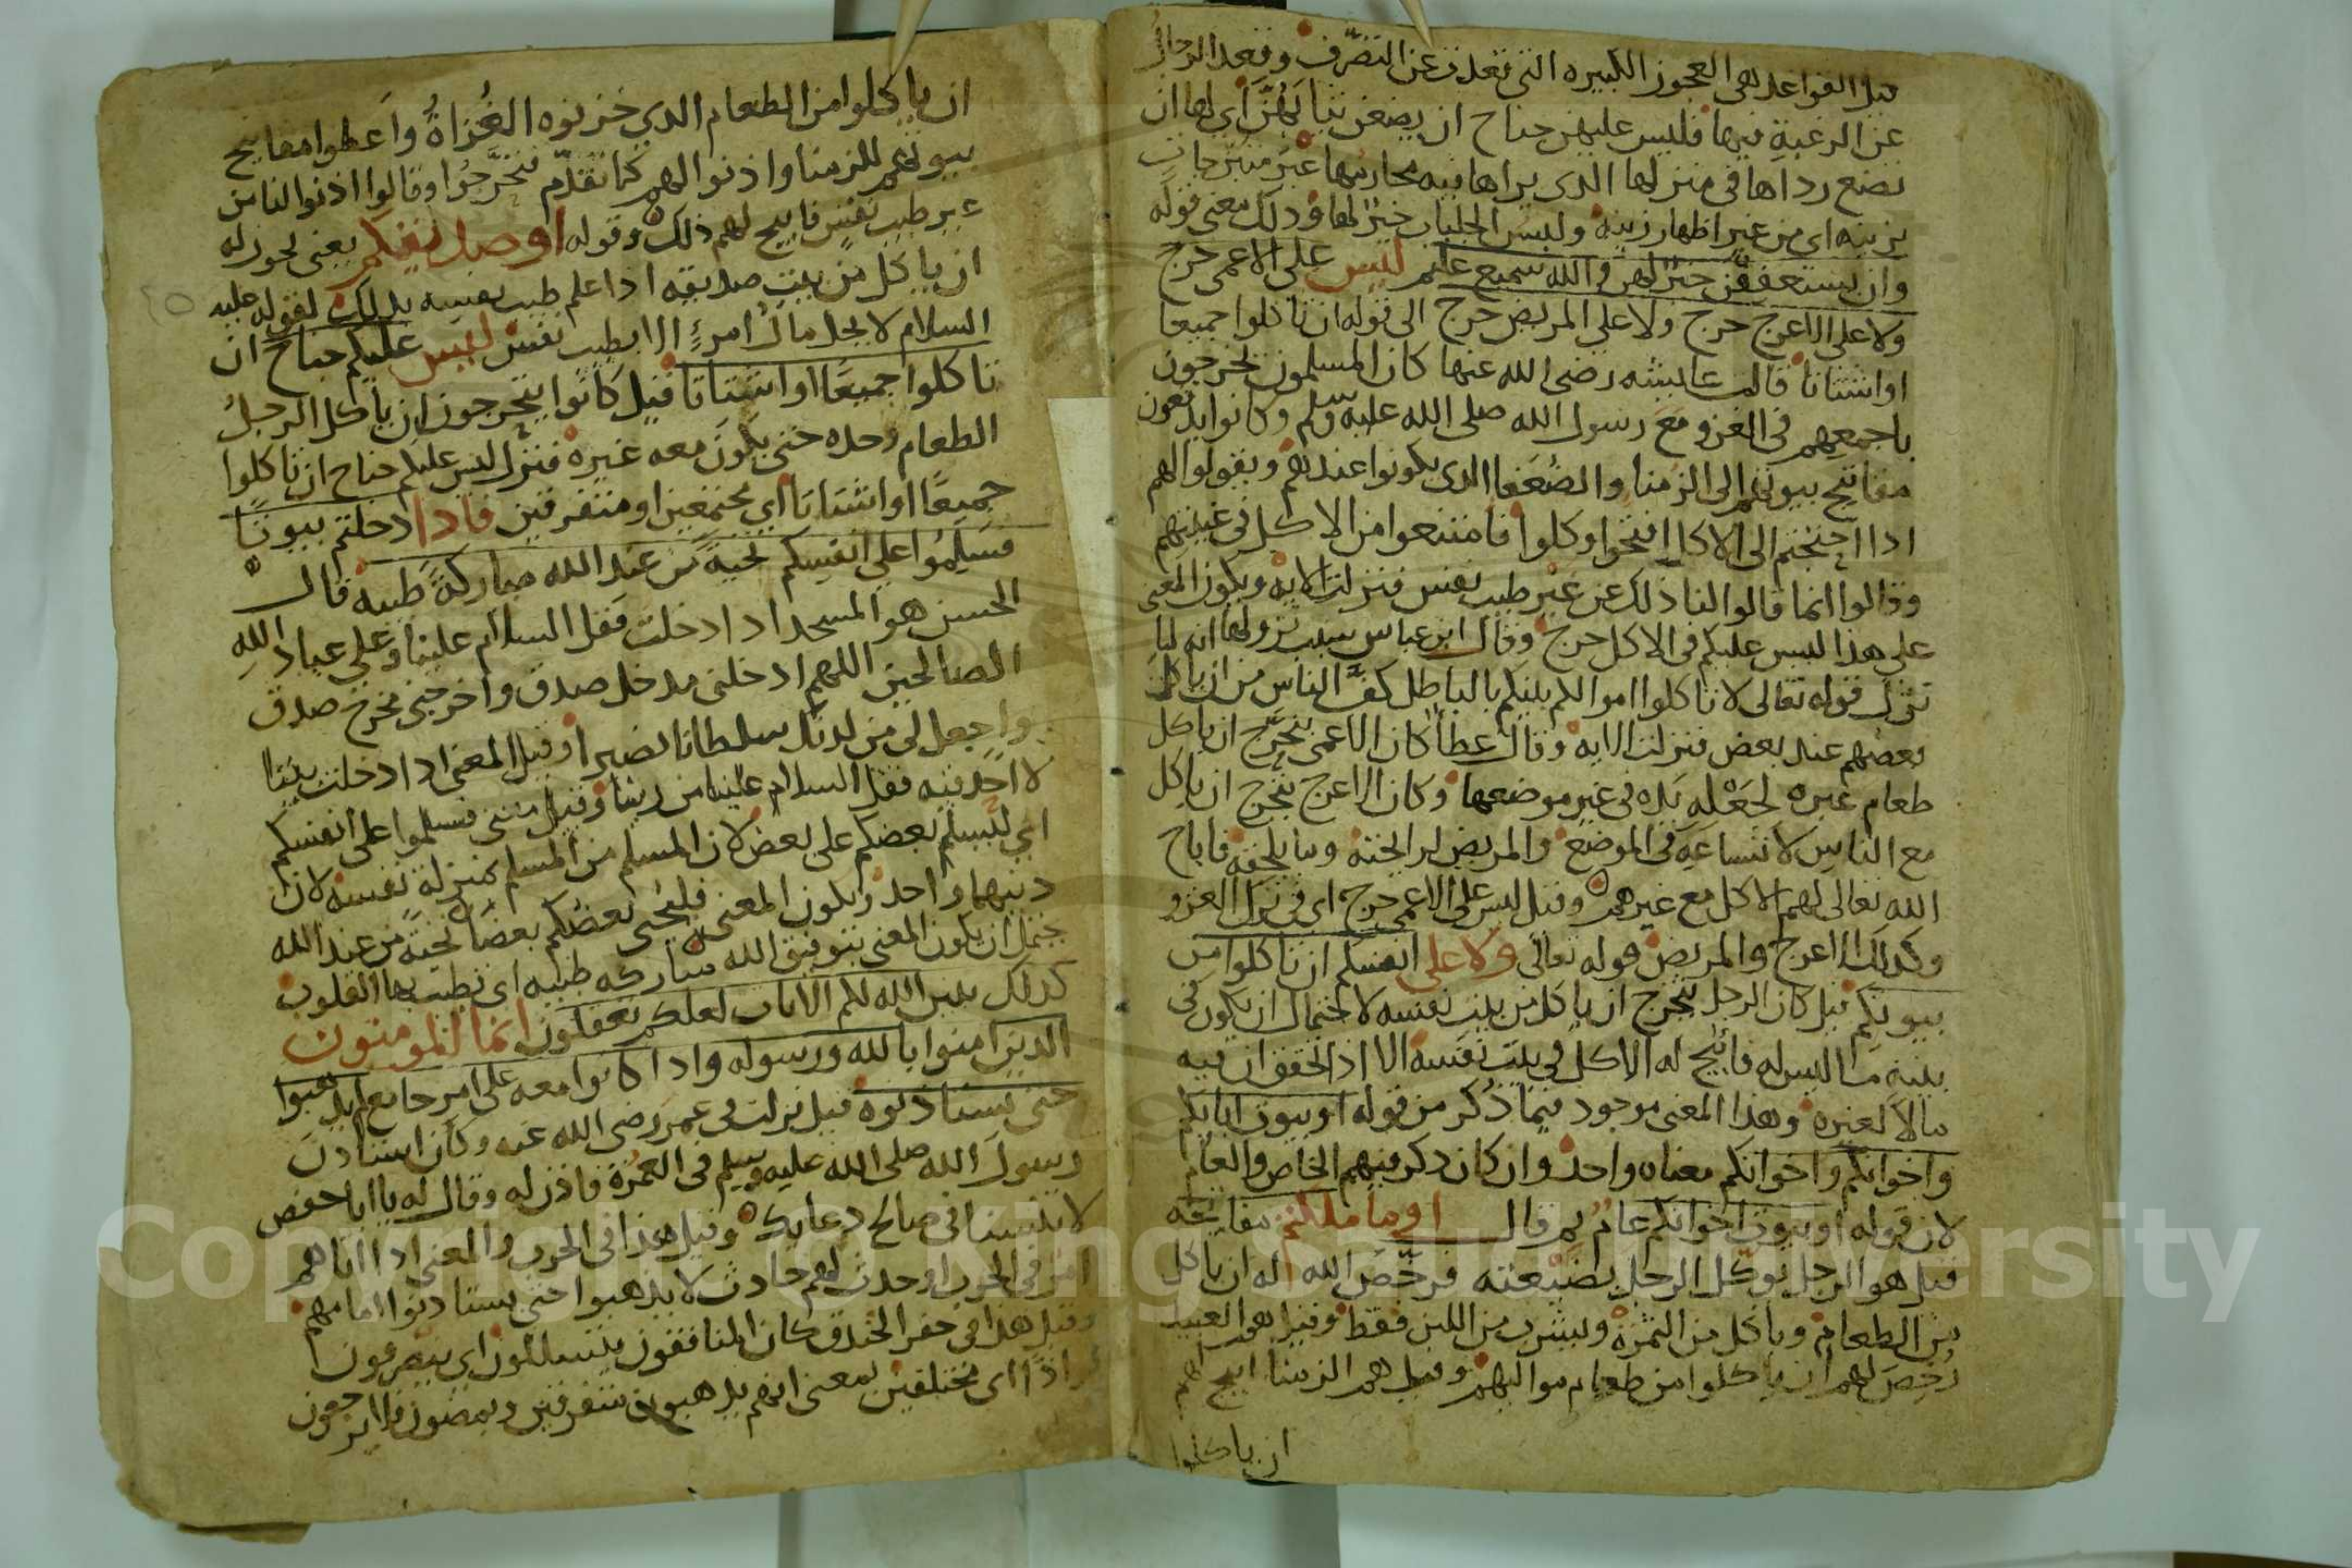 قيل القواعد هي العجوز الكبيره التي تعذرت عن التصرف وقعد الرجال
عن الرغبة فيها فليس عليهن جناح ان يضعن ثيابهن اي لها ان
تضع رداها في منزلها الذي يراها فيه محارمها غير متبرجات
بزينه اي من غير اظهار زينه ولبس الجلباب خير لها وذلك معنى قوله
وان يستعففن خير لهن والله سميع عليم ليس على الاعمى حرج
ولا على الاعرج حرج ولا على المريض حرج الى قوله ان تاكلوا جميعا
او اشتاتا قالت عايشه رضي الله عنها كان المسلمون يخرجون
باجمعهم في الغزو مع رسول الله صلى الله عليه وسلم وكانوا يدفعون
مفاتيح بيوتهم الى الزمنا والضعفا الذي يكونوا عندهم ويقولوا لهم
اذا احتجتم الى الاكل افتحوا وكلوا فامتنعوا من الاكل في غيبتهم
وقالوا انما قالوا لنا ذلك عن غير طيب نفس فنزلت الايه ويكون المعنى
على هذا ليس عليكم في الاكل حرج وقال ابن عباس سبب نزولها انه لما
نزل قوله تعالى لا تاكلوا اموالكم بينكم بالباطل كف الناس من ان ياكل
بعضهم عند بعض فنزلت الايه وقال عطا كان الاعمى يتحرج ان ياكل
طعام غيره لجعله يده في غير موضعها وكان الاعرج يتحرج ان ياكل
مع الناس لاتساعه في الموضع والمريض لرايحته وما يلحقه فاباح
الله تعالى لهم الاكل مع غيرهم وقيل ليس على الاعمى حرج اي في ترك الغزو
وكذلك الاعرج والمريض قوله تعالى ولا على انفسكم ان تاكلوا من
بيوتكم قيل كان الرجل يتحرج ان ياكل من بيت نفسه لاحتمال ان يكون في
بيته ما ليس له فابيح له الاكل في بيت نفسه الا اذا تحقق ان فيه
مالا لغيره وهذا المعنى موجود فيما ذكر من قوله او بيوت ابايكم
واخوانكم واخواتكم معناه واحد وان كان ذكر فيهم الخاص والعام
لان قوله او بيوت اخوانكم عام ثم قال او ما ملكتم مفاتحه
قيل هو الرجل يوكل الرجل بضيعته فرخص الله له ان ياكل
من الطعام وياكل من الثمرة ويشرب من اللبن فقط وقيل هم العبيد
رخص لهم ان ياكلوا من طعام مواليهم وقيل هم الزمنا ابيح لهم
ان ياكلوا
ان ياكلوا من الطعام الذي خزنوه الغزاة واعطوا مفاتيح
بيوتهم للزمنا واذنوا لهم كما تقدم فتحرجوا وقالوا اذنوا لنا من
غير طيب نفس فابيح لهم ذلك وقوله او صديقكم يعني يجوز له
ان ياكل من بيت صديقه اذا علم طيب نفسه بذلك لقوله عليه
السلام لا يحل مال امرئ الا بطيب نفس ليس عليكم جناح ان
تاكلوا جميعا او اشتاتا قيل كانوا يتحرجون ان ياكل الرجل
الطعام وحده حتى يكون معه غيره فنزل ليس عليكم جناح ان تاكلوا
جميعا او اشتاتا اي مجتمعين او متفرقين فاذا دخلتم بيوتا
فسلموا على انفسكم تحية من عند الله مباركة طيبه قال
الحسن هو المسجد اذا دخلت فقل السلام علينا وعلى عباد الله
الصالحين اللهم ادخلني مدخل صدق واخرجني مخرج صدق
واجعل لي من لدنك سلطانا نصيرا وقيل المعنى اذا دخلت بيتا
لا احد فيه فقل السلام علينا من ربنا وقيل معنى فسلموا على انفسكم
اي ليسلم بعضكم على بعض لان المسلم من المسلم بمنزلة نفسه لان
دينهما واحد ويكون المعنى فليحيي بعضكم بعضا تحية من عند الله
يحتمل ان يكون المعنى بتوفيق الله مباركه طيبه اي تطيب بها القلوب
كذلك يبين الله لكم الايات لعلكم تعقلون انما المومنون
الذين امنوا بالله ورسوله واذا كانوا معه على امر جامع لم يذهبوا
حتى يستاذنوه قيل نزلت في عمر رضي الله عنه وكان استاذن
رسول الله صلى الله عليه وسلم في العمرة فاذن له وقال له يا ابا حفص
لا تنسنا في صالح دعايك وقيل هذا في الحرب والمعنى اذا اتاهم
امر في الحرب او حدث لهم حادث لا يذهبوا حتى يستاذنوا امامهم
وقيل هذا في حفر الخندق كان المنافقون يتسللون اي ينصرفون
لواذا اي مختلفين بمعنى انهم يذهبون متفرقين ويمضون فلا يرجعون
Copyright © King Saud University